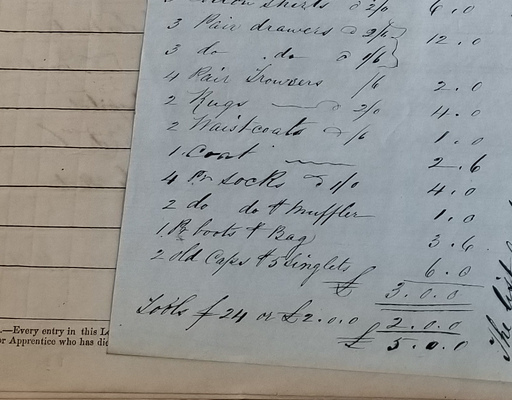 shirts @ 2/0 6.0
3 Pair drawers @ 2/6 } 12.0
3 do . do @ 1/6 }
4 Pair Trowsers /6 2.0
2 Rugs — @ 2/0 4.0
2 Waistcoats @ /6 1.0
1 Coat — 2.6
4 Pr Socks @ 1/0 4.0
2 do do & Muffler 1.0
1 Pr boots & Bag 3.6
2 old Caps & 5 Singlets 6.0
£ 3.0.0
Tools f 24 or £2.0.0 2.0.0
£ 5.0.0
.—Every entry in this
or Apprentice who has
The list